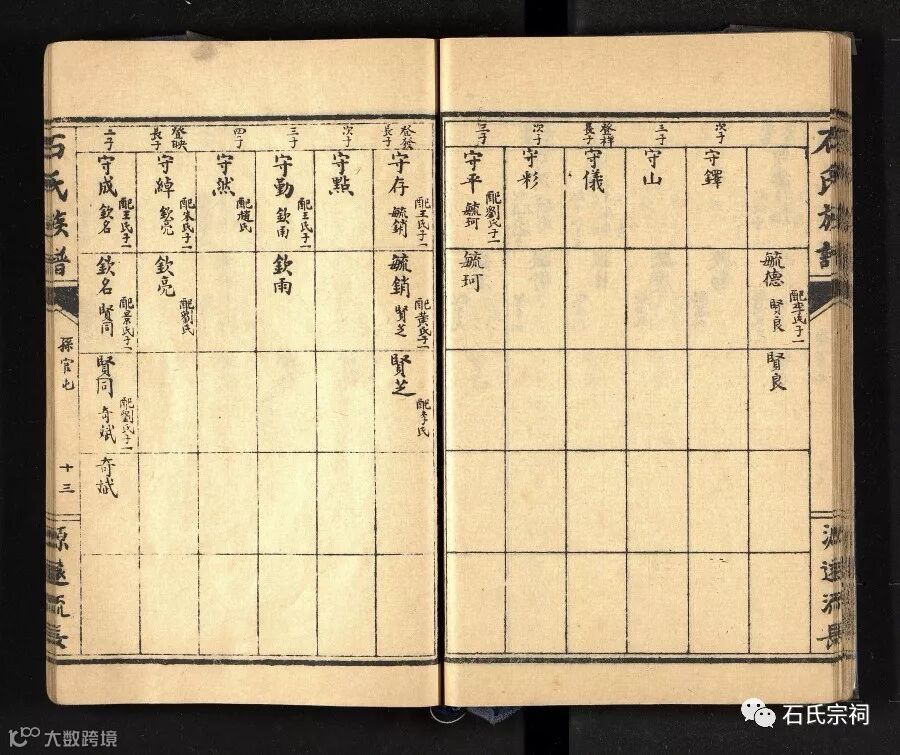 石氏族譜
源遠流長
毓德 賢良
配李氏子一
賢良
次子
守鐸
三子
守山
登祥
長子
守儀
次子
守彩
三子
守平 毓珂
配劉氏子一
毓珂
登發
長子
守存 毓銷
配王氏子一
毓銷 賢芝
配黃氏子一
賢芝
配李氏
次子
守點
三子
守勤 欽雨
配王氏子一
欽雨
四子
守然
配趙氏
登映
長子
守綽 欽亮
配朱氏子一
欽亮
配劉氏
二子
守成 欽名
配王氏子一
欽名 賢同
配景氏子一
賢同 奇斌
配劉氏子一
奇斌
石氏族譜
孫官屯
十三
源遠流長
石氏宗祠
大数跨境